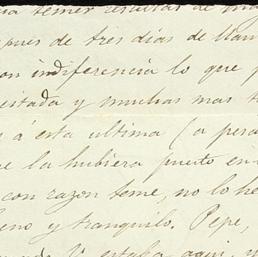 temer
spués de tres días de llam
on indiferencia lo que p
estada y muchas mas
s á esta ultima (a pesa
e la hubiera puesto en
con razon teme, no lo he
eno y tranquilo. Pepe,
estaba aqui,